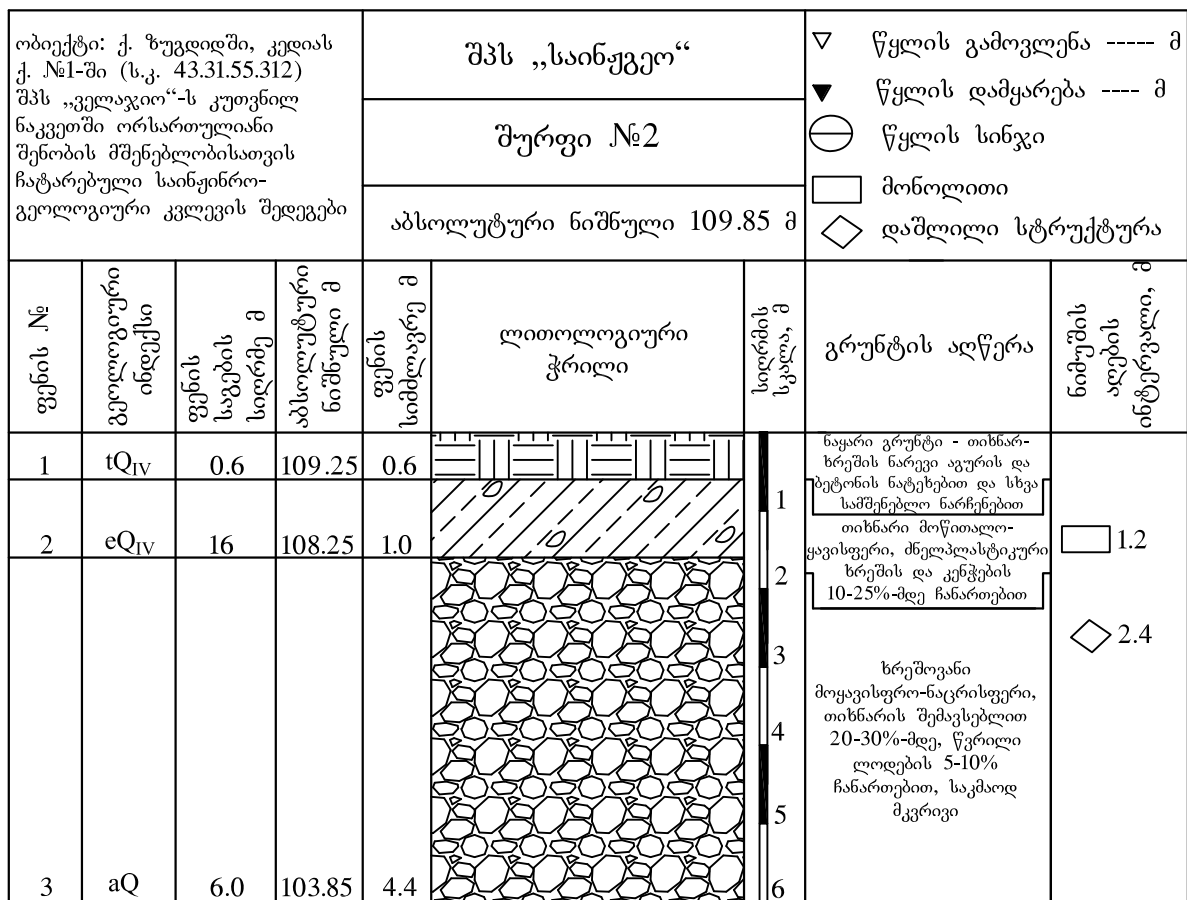 ობიექტი: ქ. ზუგდიდში, კედიას
ქ. №1-ში (ს.კ. 43.31.55.312)
შპს „ველაჯიო“-ს კუთვნილ
ნაკვეთში ორსართულიანი
შენობის მშენებლობისათვის
ჩატარებული საინჟინრო-
გეოლოგიური კვლევის შედეგები
შპს „საინჟგეო“
შურფი №2
აბსოლუტური ნიშნული 109.85 მ
წყლის გამოვლენა ----- მ
წყლის დამყარება ---- მ
წყლის სინჯი
მონოლითი
დაშლილი სტრუქტურა
ფენის №
გეოლოგიური
ინდექსი
ფენის
საგების
სიღრმე მ
აბსოლუტური
ნიშნული მ
ფენის
სიმძლავრე მ
ლითოლოგიური
ჭრილი
სიღრმის
სკალა, მ
გრუნტის აღწერა
ნიმუშის
აღების
ინტერვალი, მ
1 tQIV 0.6 109.25 0.6
ნაყარი გრუნტი - თიხნარ-
ხრეშის ნარევი აგურის და
ბეტონის ნატეხებით და სხვა
სამშენებლო ნარჩენებით
1
2 eQIV 16 108.25 1.0
თიხნარი მოწითალო-
ყავისფერი, ძნელპლასტიკური
ხრეშის და კენჭების
10-25%-მდე ჩანართებით
1.2
2
2.4
3
ხრეშოვანი
მოყავისფრო-ნაცრისფერი,
თიხნარის შემავსებლით
20-30%-მდე, წვრილი
ლოდების 5-10%
ჩანართებით, საკმაოდ
მკვრივი
4
5
3 aQ 6.0 103.85 4.4
6